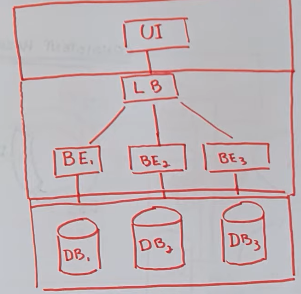 UI
LB
BE₁ BE₂ BE₃
DB₁ DB₂ DB₃